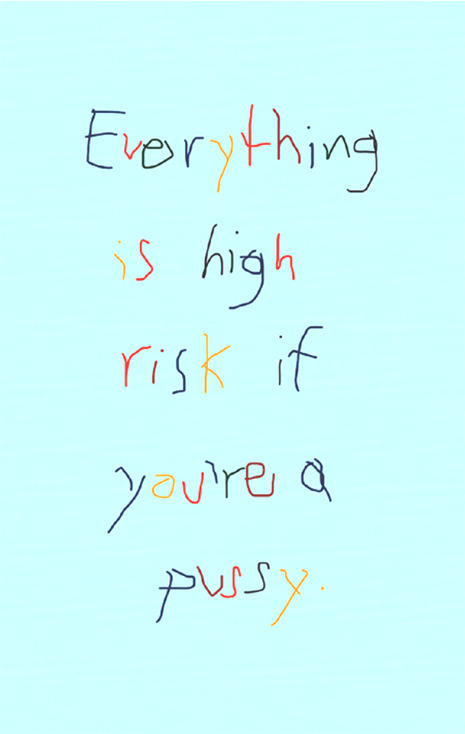 Everything
is high
risk if
you're a
pussy.